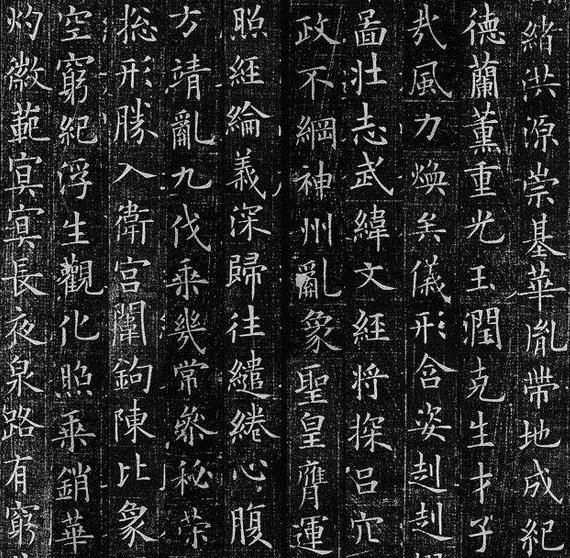 緒洪源崇基華胤帶地成紀
德蘭薰重光玉潤克生才子
哉風力煥矣儀形含姿赳赳
啚壯志武緯文經將探呂穴
政不綱神州亂象聖皇膺運
照經綸義深歸往繾綣心腹
方靖亂九伐乘幾常叅秘策
捴形勝入衛宮闈鉤陳比象
空窮紀浮生觀化照乘銷華
灼徽範冥冥長夜泉路有窮